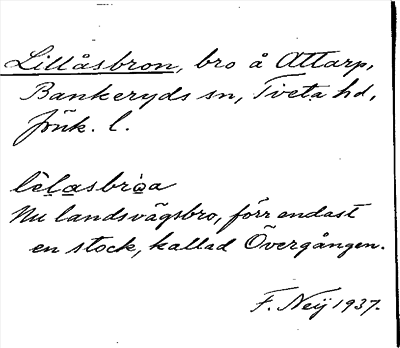 Lillåsbron, bro å Attarp,
Bankeryds sn, Tveta hd,
Jönk. l.
lèlasbròa
Nu landsvägsbro, förr endast
en stock, kallad Övergången.
F. Neij 1937.